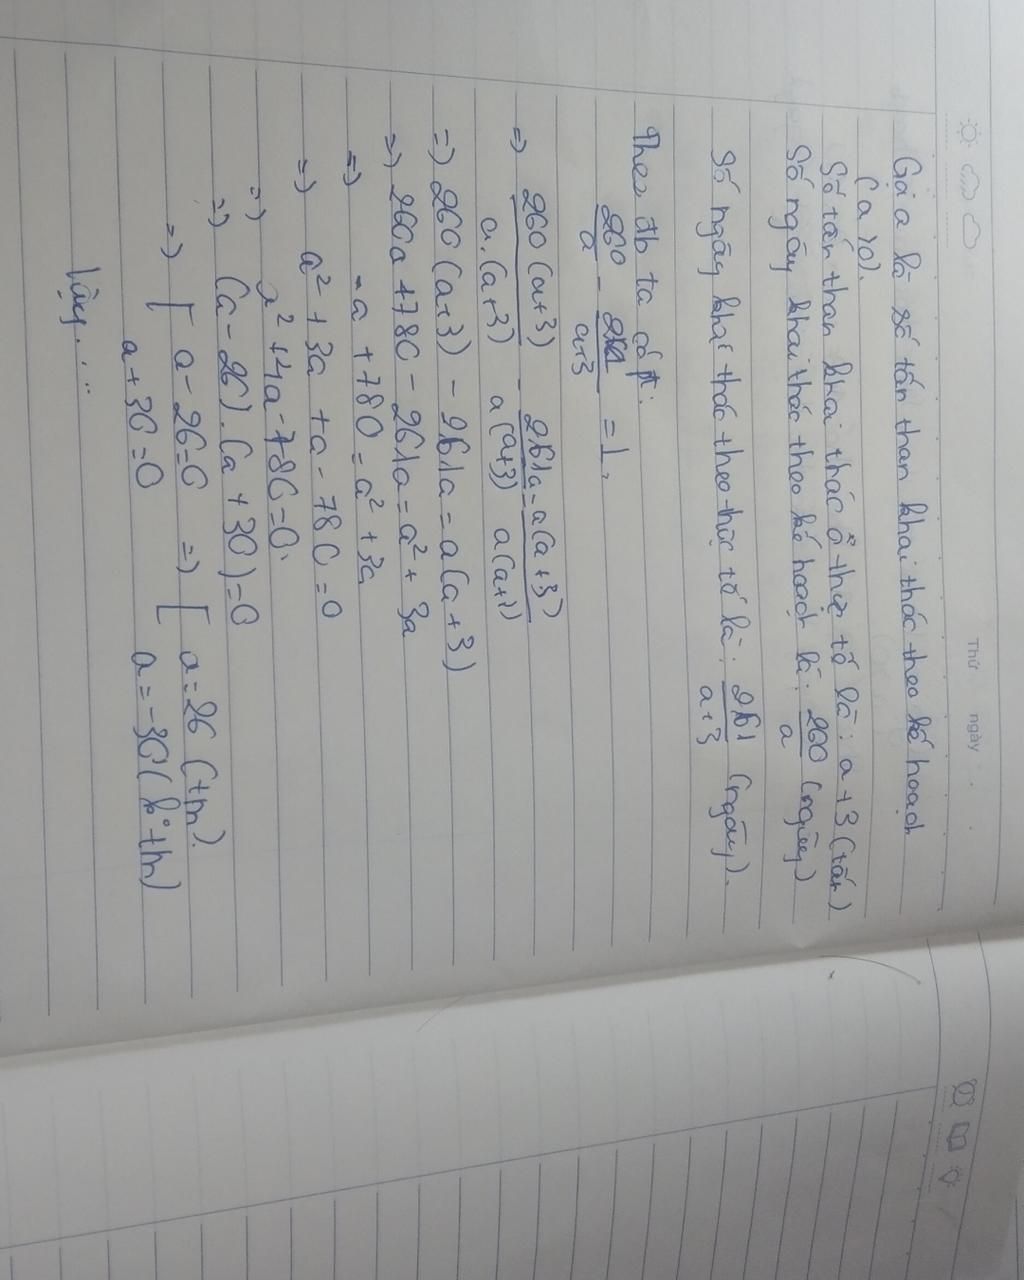 Thứ ngày
Gọi a là số tấn than khai thác theo kế hoạch
(a>0).
Số tấn than khai thác ở thực tế là: a+3 (tấn)
Số ngày khai thác theo kế hoạch là: 260/a (ngày)
Số ngày khai thác theo thực tế là: 261/a+3 (ngày).
Theo đb ta có pt:
260/a - 261/a+3 = 1.
=> 260(a+3)/a.(a+3) - 261a/a(a+3) = a(a+3)/a(a+1)
=> 260(a+3) - 261a = a(a+3)
=> 260a + 780 - 261a = a² + 3a
=> -a + 780 = a² + 3a
=> a² + 3a + a - 780 = 0
=> a² + 4a - 780 = 0.
=> (a - 26).(a + 30) = 0
=> [ a - 26 = 0 => [ a = 26 (tm).
a + 30 = 0 a = -30 (k° tm)
Vậy....